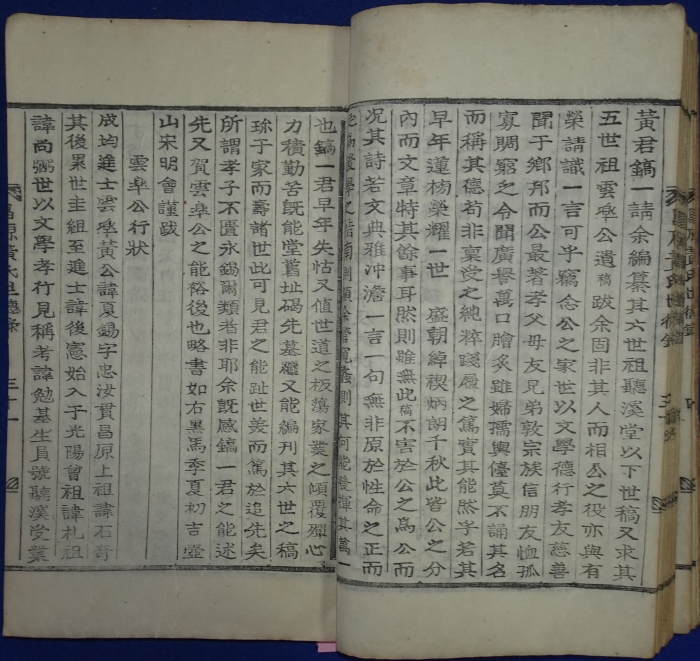 黃君鎬一請余編纂其六世祖聽溪堂以下世稿又求其
五世祖雲臯公遺稿跋余固非其人而相公之役亦與有
榮請識一言可乎竊念公之家世以文學德行孝友慈善
聞于鄉邦而公最著孝父母友兄弟敦宗族信朋友恤孤
寡賙窮之令聞廣譽萬口膾炙雖婦孺輿儓莫不誦其名
而稱其德苟非稟受之純粹踐履之篤實其能然乎若其
早年蓮榜榮耀一世 盛朝綽楔炳朗千秋此皆公之分
內而文章特其餘事耳然則雖無此稿不害於公之爲公而
況其詩若文典雅冲澹一言一句無非原於性命之正而
學之指南則顧余管窺蠡測其何能發揮其萬一
也鎬一君早年失怙又值世道之板蕩家業之傾覆殫心
力積勤苦旣能堂舊址碣先墓繼又能編刊其六世之稿
珎于家而壽諸世此可見君之能趾世美而篤於追先矣
所謂孝子不匱永錫爾類者非耶余旣感鎬一君之能述
先又賀雲臯公之能裕後也略書如右黑馬季夏初吉壺
山宋明會謹跋
雲臯公行狀
成均進士雲臯黃公諱夏錫字忠汝貫昌原上祖諱石奇
其後累世圭組至進士諱後憲始入于光陽曾祖諱札祖
諱尚弼世以文學孝行見稱考諱勉基生員號聽溪受業
昌原黃氏世德錄 三十一